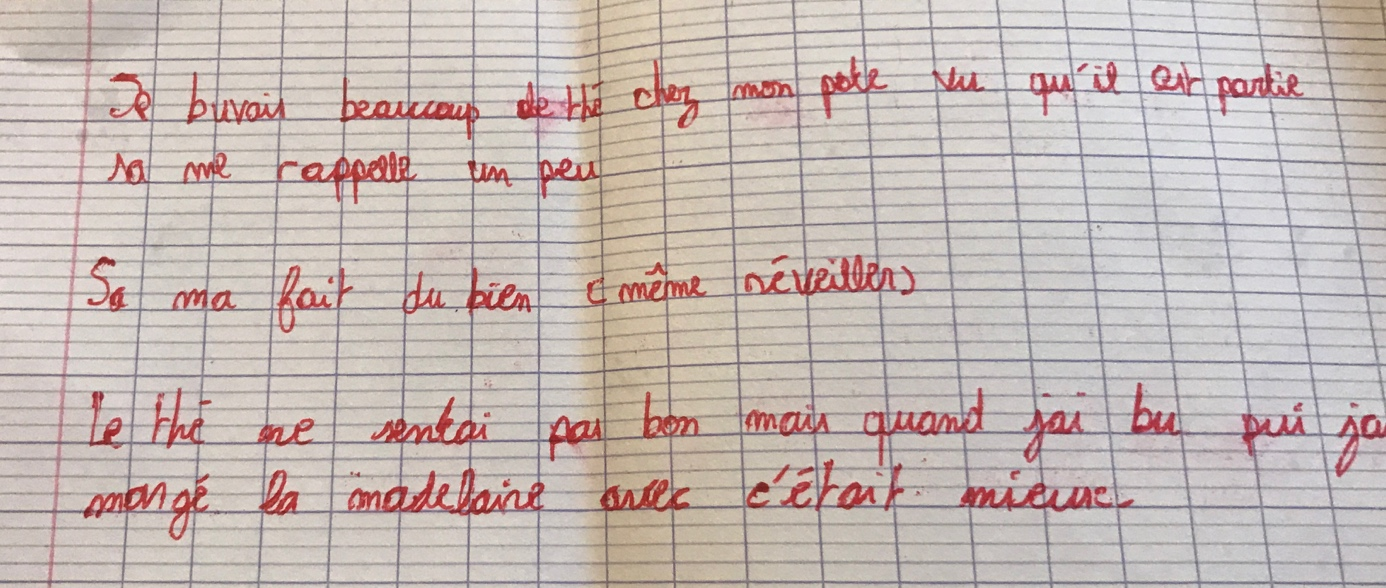 Je buvais beaucoup de thé chez mon pote vu qu'il est partie
sa me rappelle un peu
Sa ma fait du bien (même réveiller)
Le thé ne sentai pas bon mais quand jai bu pui ja
mangé la madelaine avec c'était mieux